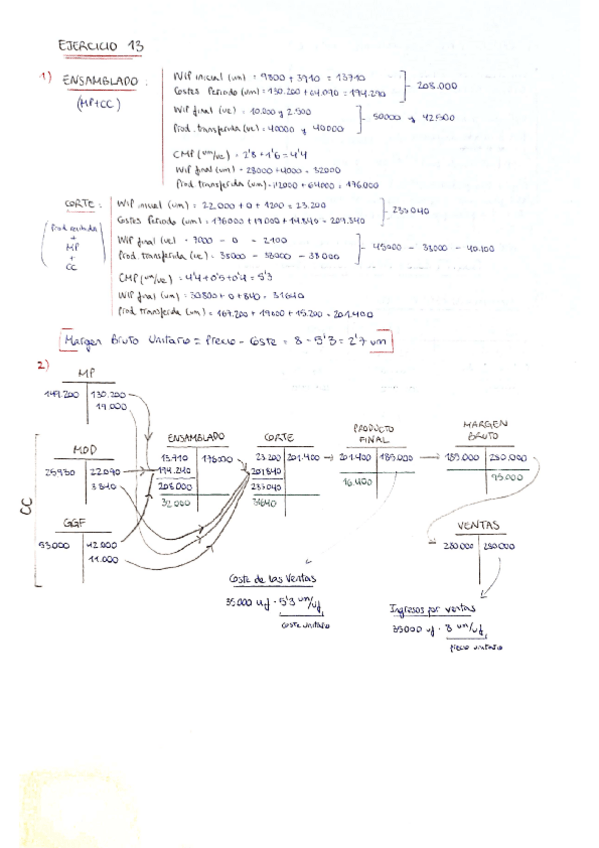 EJERCICIO 13
1) ENSAMBLADO :
(MP+CC)
WIP inicial (um) = 9800 + 3910 = 13710
Costes Periodo (um) = 130.200 + 64.090 = 194.290
208.000
WIP final (ue) = 10.000 y 2.500
Prod. transferida (ue) = 40000 y 40000
50000 y 42500
CMP (um/ue) = 2'8 + 1'6 = 4'4
WIP final (um) = 28000 + 4000 = 32000
Prod. transferida (um) = 112000 + 64000 = 176000
CORTE :
+
MP
+
CC
WIP inicial (um) = 22.000 + 0 + 1200 = 23.200
Costes Periodo (um) = 176000 + 19.000 + 14.840 =
WIP final (ue) = 7000 - 0 - 2100
Prod. transferida (ue) = 38000 - 38000 - 38000
45000 - 38000 - 40.100
CMP (um/ue) = 4'4 + 0'5 + 0'4 = 5'3
WIP final (um) = 30800 + 0 + 840 = 31640
Prod. transferida (um) = 167.200 + 19000 + 15.200 = 201.400
Margen Bruto Unitario = Precio - Coste = 8 - 5'3 = 2'7 um
2)
MP
149.200 130.200
19.000
MOD
25930 22.090
3840
GGF
53.000 42.000
11.000
CC
ENSAMBLADO
176000
208.000
32.000
CORTE
23.200 201.400
31640
PRODUCTO
FINAL
201.400
16.400
MARGEN
BRUTO
280.000
95.000
VENTAS
280000 280000
Coste de las Ventas
35000 uf · 5'3 um/uf
coste unitario
Ingresos por ventas
35000 uf · 8 um/uf
precio unitario